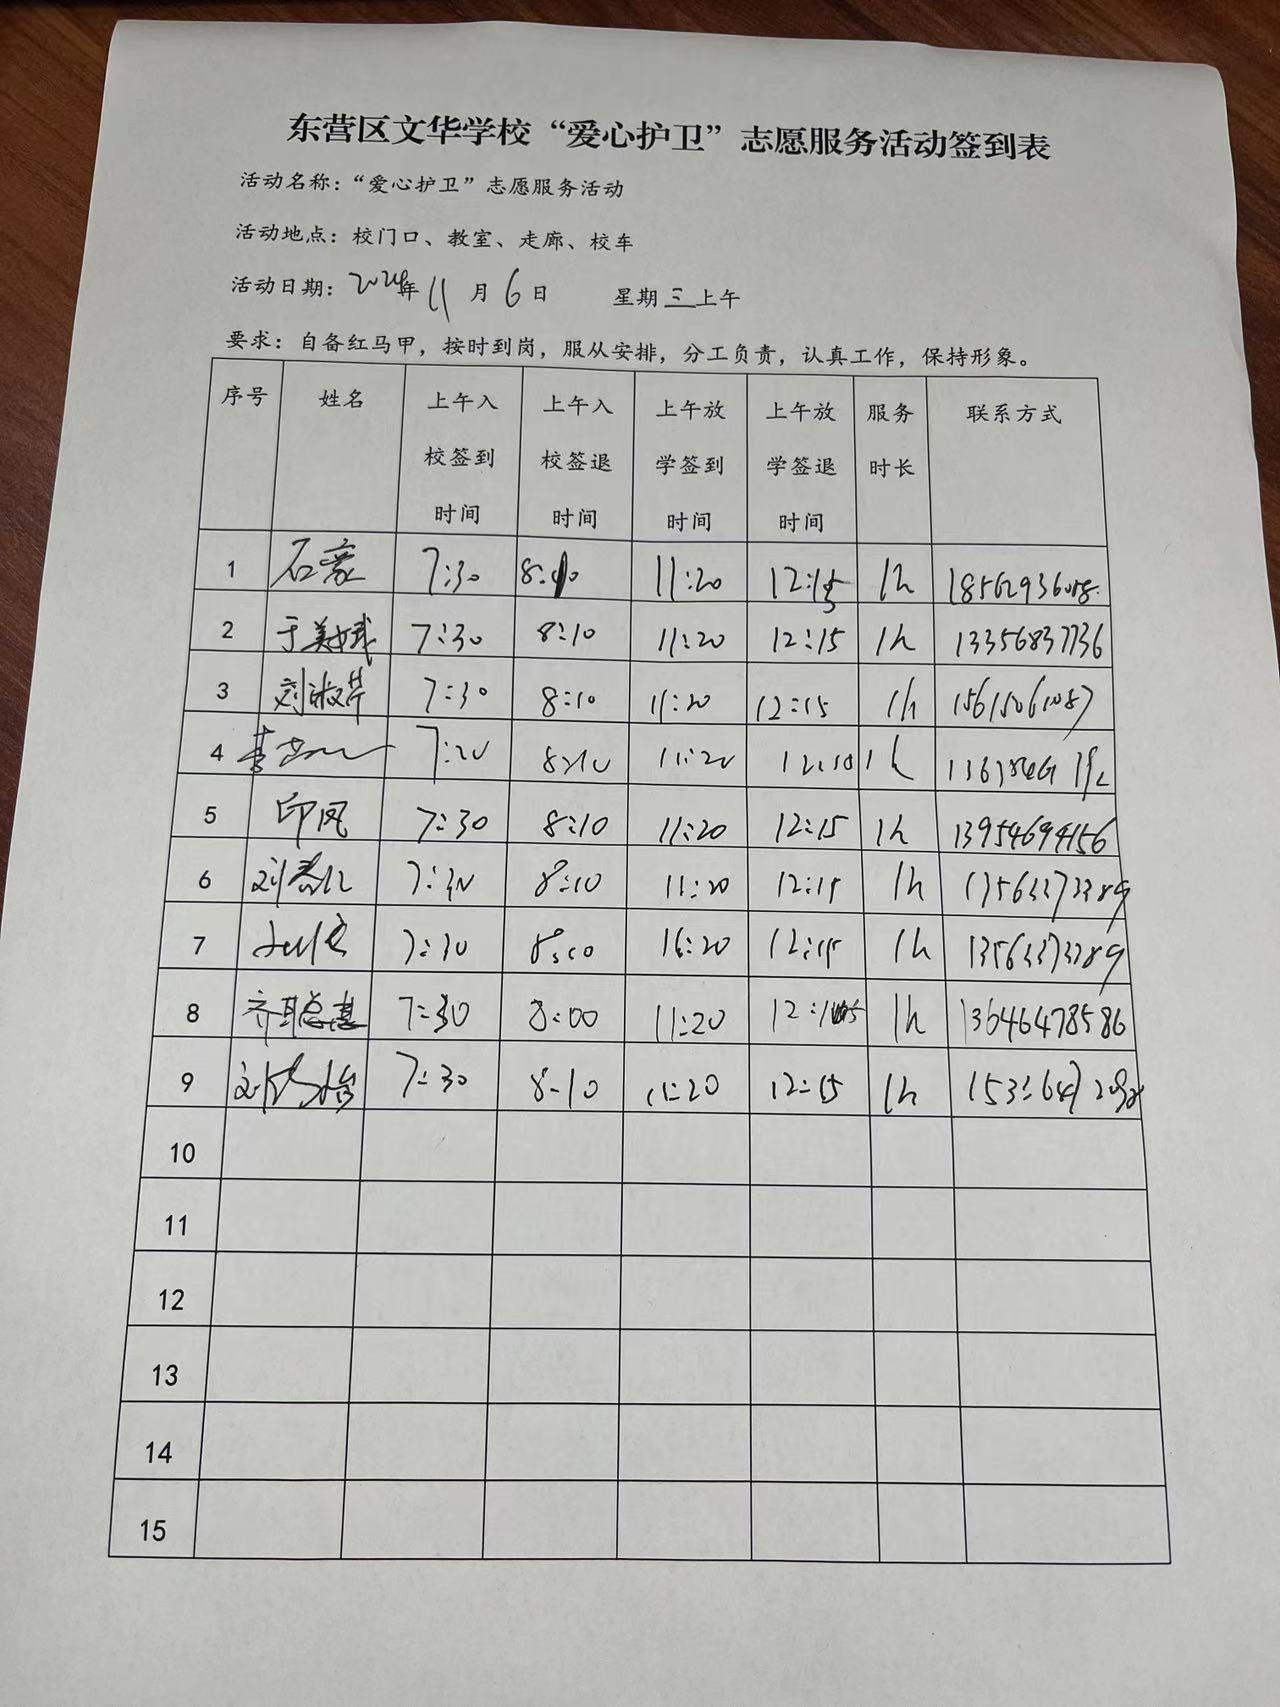 东营区文华学校“爱心护卫”志愿服务活动签到表
活动名称：“爱心护卫”志愿服务活动
活动地点：校门口、教室、走廊、校车
活动日期：2024年11月6日 星期三上午
要求：自备红马甲，按时到岗，服从安排，分工负责，认真工作，保持形象。
序号 姓名 上午入校签到时间 上午入校签退时间 上午放学签到时间 上午放学签退时间 服务时长 联系方式
1 7:30 8:10 11:20 12:15 1h
2 7:30 8:10 11:20 12:15 1h 13356837736
3 刘淑芹 7:30 8:10 11:20 12:15 1h
4 7:20 8:10 11:20 12:10 1h
5 印凤 7:30 8:10 11:20 12:15 1h 13954694156
6 7:30 8:10 11:20 12:15 1h 13563373389
7 7:30 11:20 12:15 1h 13563373389
8 7:30 8:00 11:20 1h 13646478586
9 7:30 8-10 11:20 12:15 1h
10
11
12
13
14
15